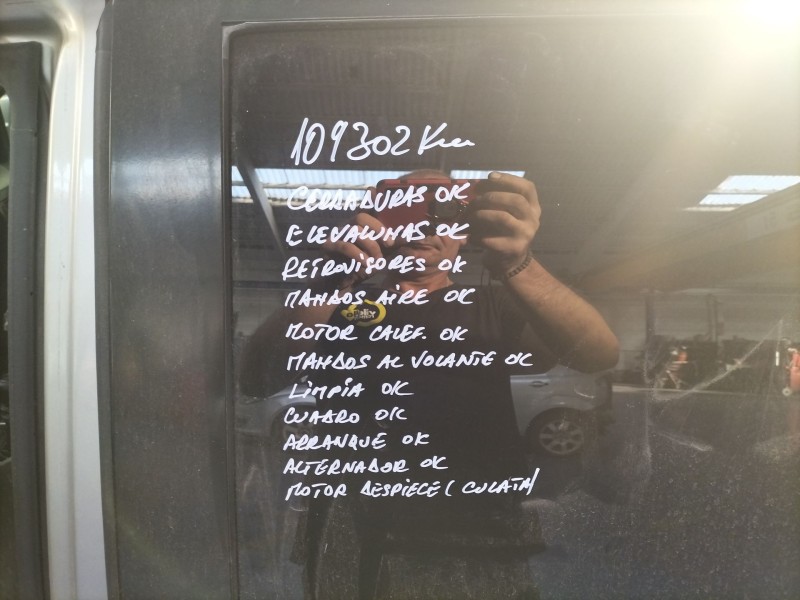 109302 Km
CERRADURAS OK
ELEVALUNAS OK
RETROVISORES OK
MANDOS AIRE OK
MOTOR CALEF. OK
MANDOS AL VOLANTE OK
LIMPIA OK
CUADRO OK
ARRANQUE OK
ALTERNADOR OK
MOTOR DESPIECE (CULATA)